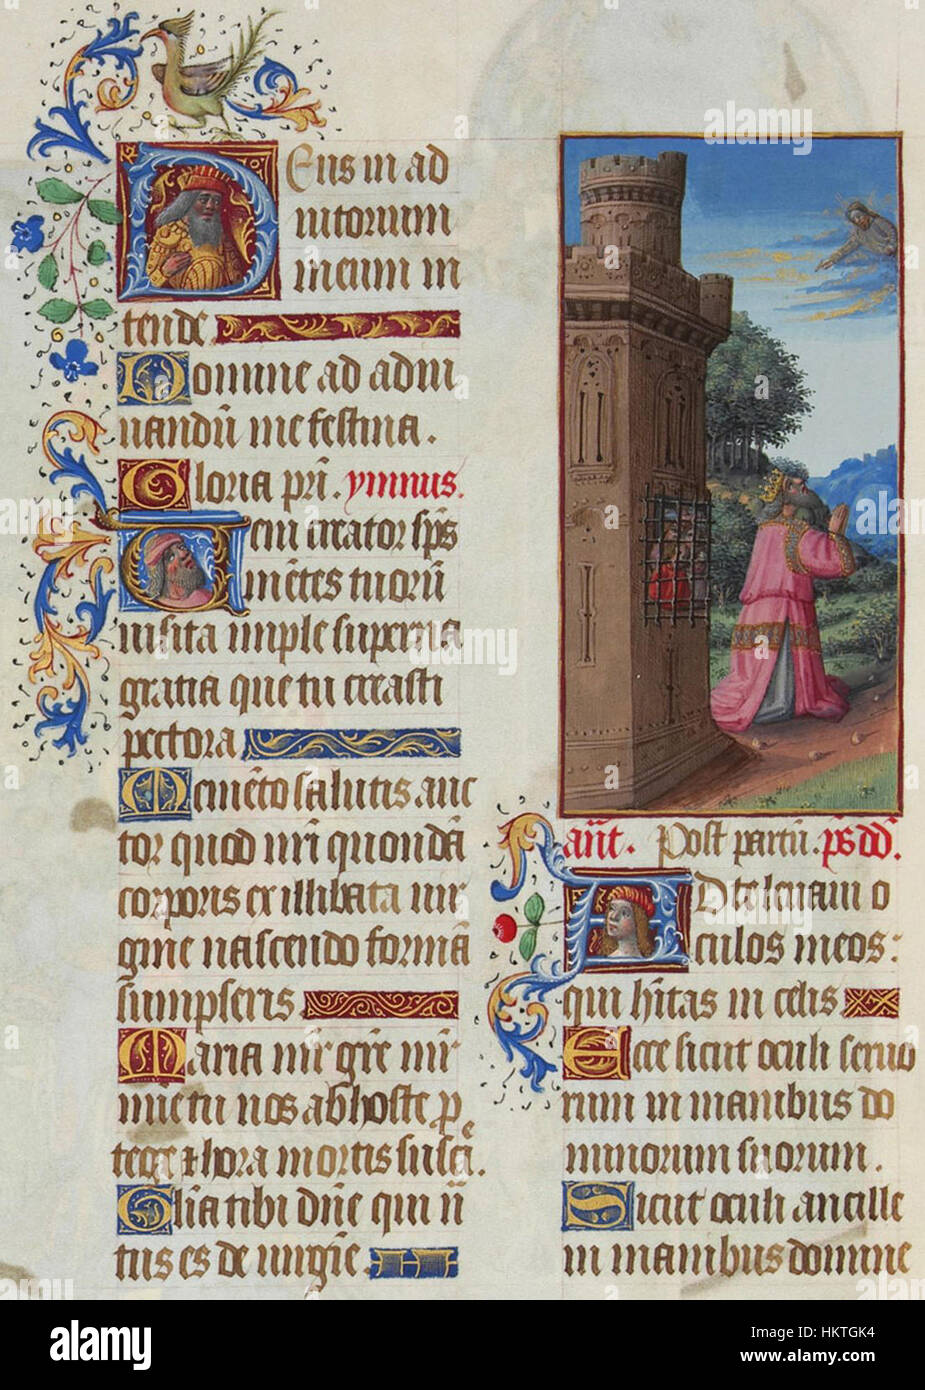 Deus in ad
iutorium
meum in
tende
Domine ad adiu
uandū me festina.
Gloria pri. ymnus.
Veni creator sp̄s
mētes tuorū
uisita imple superna
gratia que tu creasti
pectora
Memēto salutis auc
tor quod nr̄i quondā
corporis ex illibata uir
gine nascendo formā
sumpseris
Maria mr̄ grīe mr̄
mie tu nos ab hoste p
tege & hora mortis susci.
Gl̄ia tibi dn̄e qui n̄
tus es de uirgīe.
an̄t. Post partū. p̄s dd̄.
AD te leuaui o
culos meos:
qui hītas in celis
Ecce sicut oculi seruo
rum in manibus do
minorum suorum.
Sicut oculi ancille
in manibus domine
alamy stock photo
HKTGK4
www.alamy.com